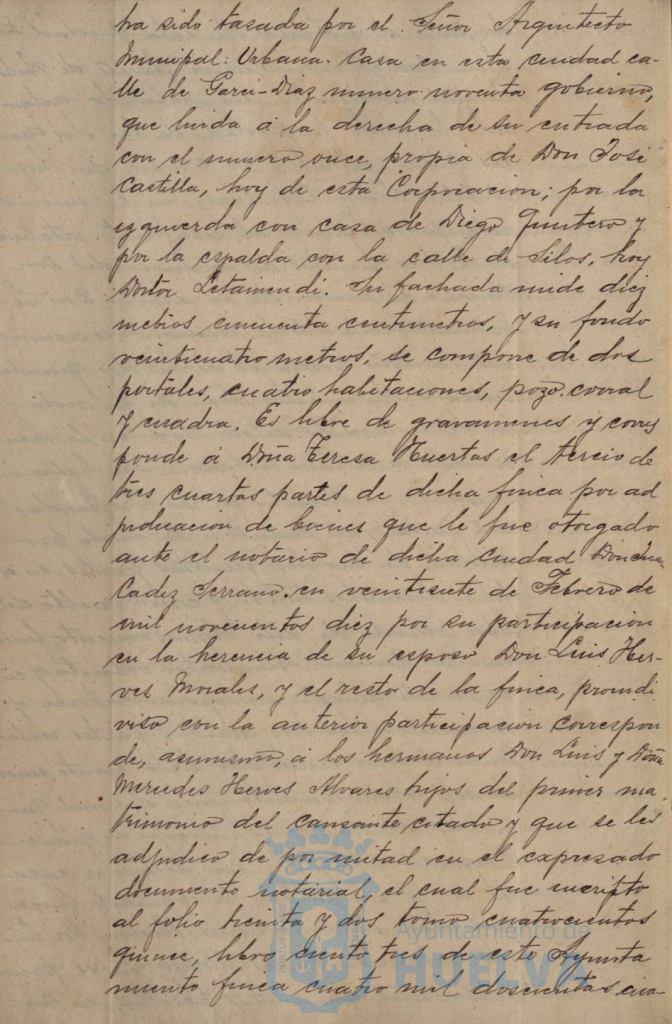 ha sido tasada por el Señor Arquitecto
Municipal: Urbana. Casa en esta ciudad ca-
lle de Garci-Diaz numero noventa gobierno,
que linda á la derecha de su entrada
con el numero once, propia de Don José
Castilla, hoy de esta Corporacion; por la
izquierda con casa de Diego Quintero y
por la espalda con la calle de Silos, hoy
Doctor Letamendi. Su fachada mide diez
metros cincuenta centimetros, y su fondo
veinticuatro metros, se compone de dos
portales, cuatro habitaciones, pozo, corral
y cuadra. Es libre de gravamenes y corres
ponde á Doña Teresa Huertas el tercio de
tres cuartas partes de dicha finca por ad
judicacion de bienes que le fue otorgado
ante el notario de dicha ciudad Don Juan
Cadiz Serrano, en veintisiete de Febrero de
mil novecientos diez por su participacion
en la herencia de su esposo Don Luis Her-
ves Morales, y el resto de la finca, proindi
viso con la anterior participacion correspon
de, asimismo, á los hermanos Don Luis y Doña
Mercedes Herves Alvares hijos del primer ma
trimonio del causante citado y que se les
adjudico de por mitad en el expresado
documento notarial, el cual fue inscripto
al folio treinta y dos tomo cuatrocientos
quince, libro ciento tres de este Ayunta
miento finca cuatro mil doscientas cua-
Ayuntamiento de
HUELVA